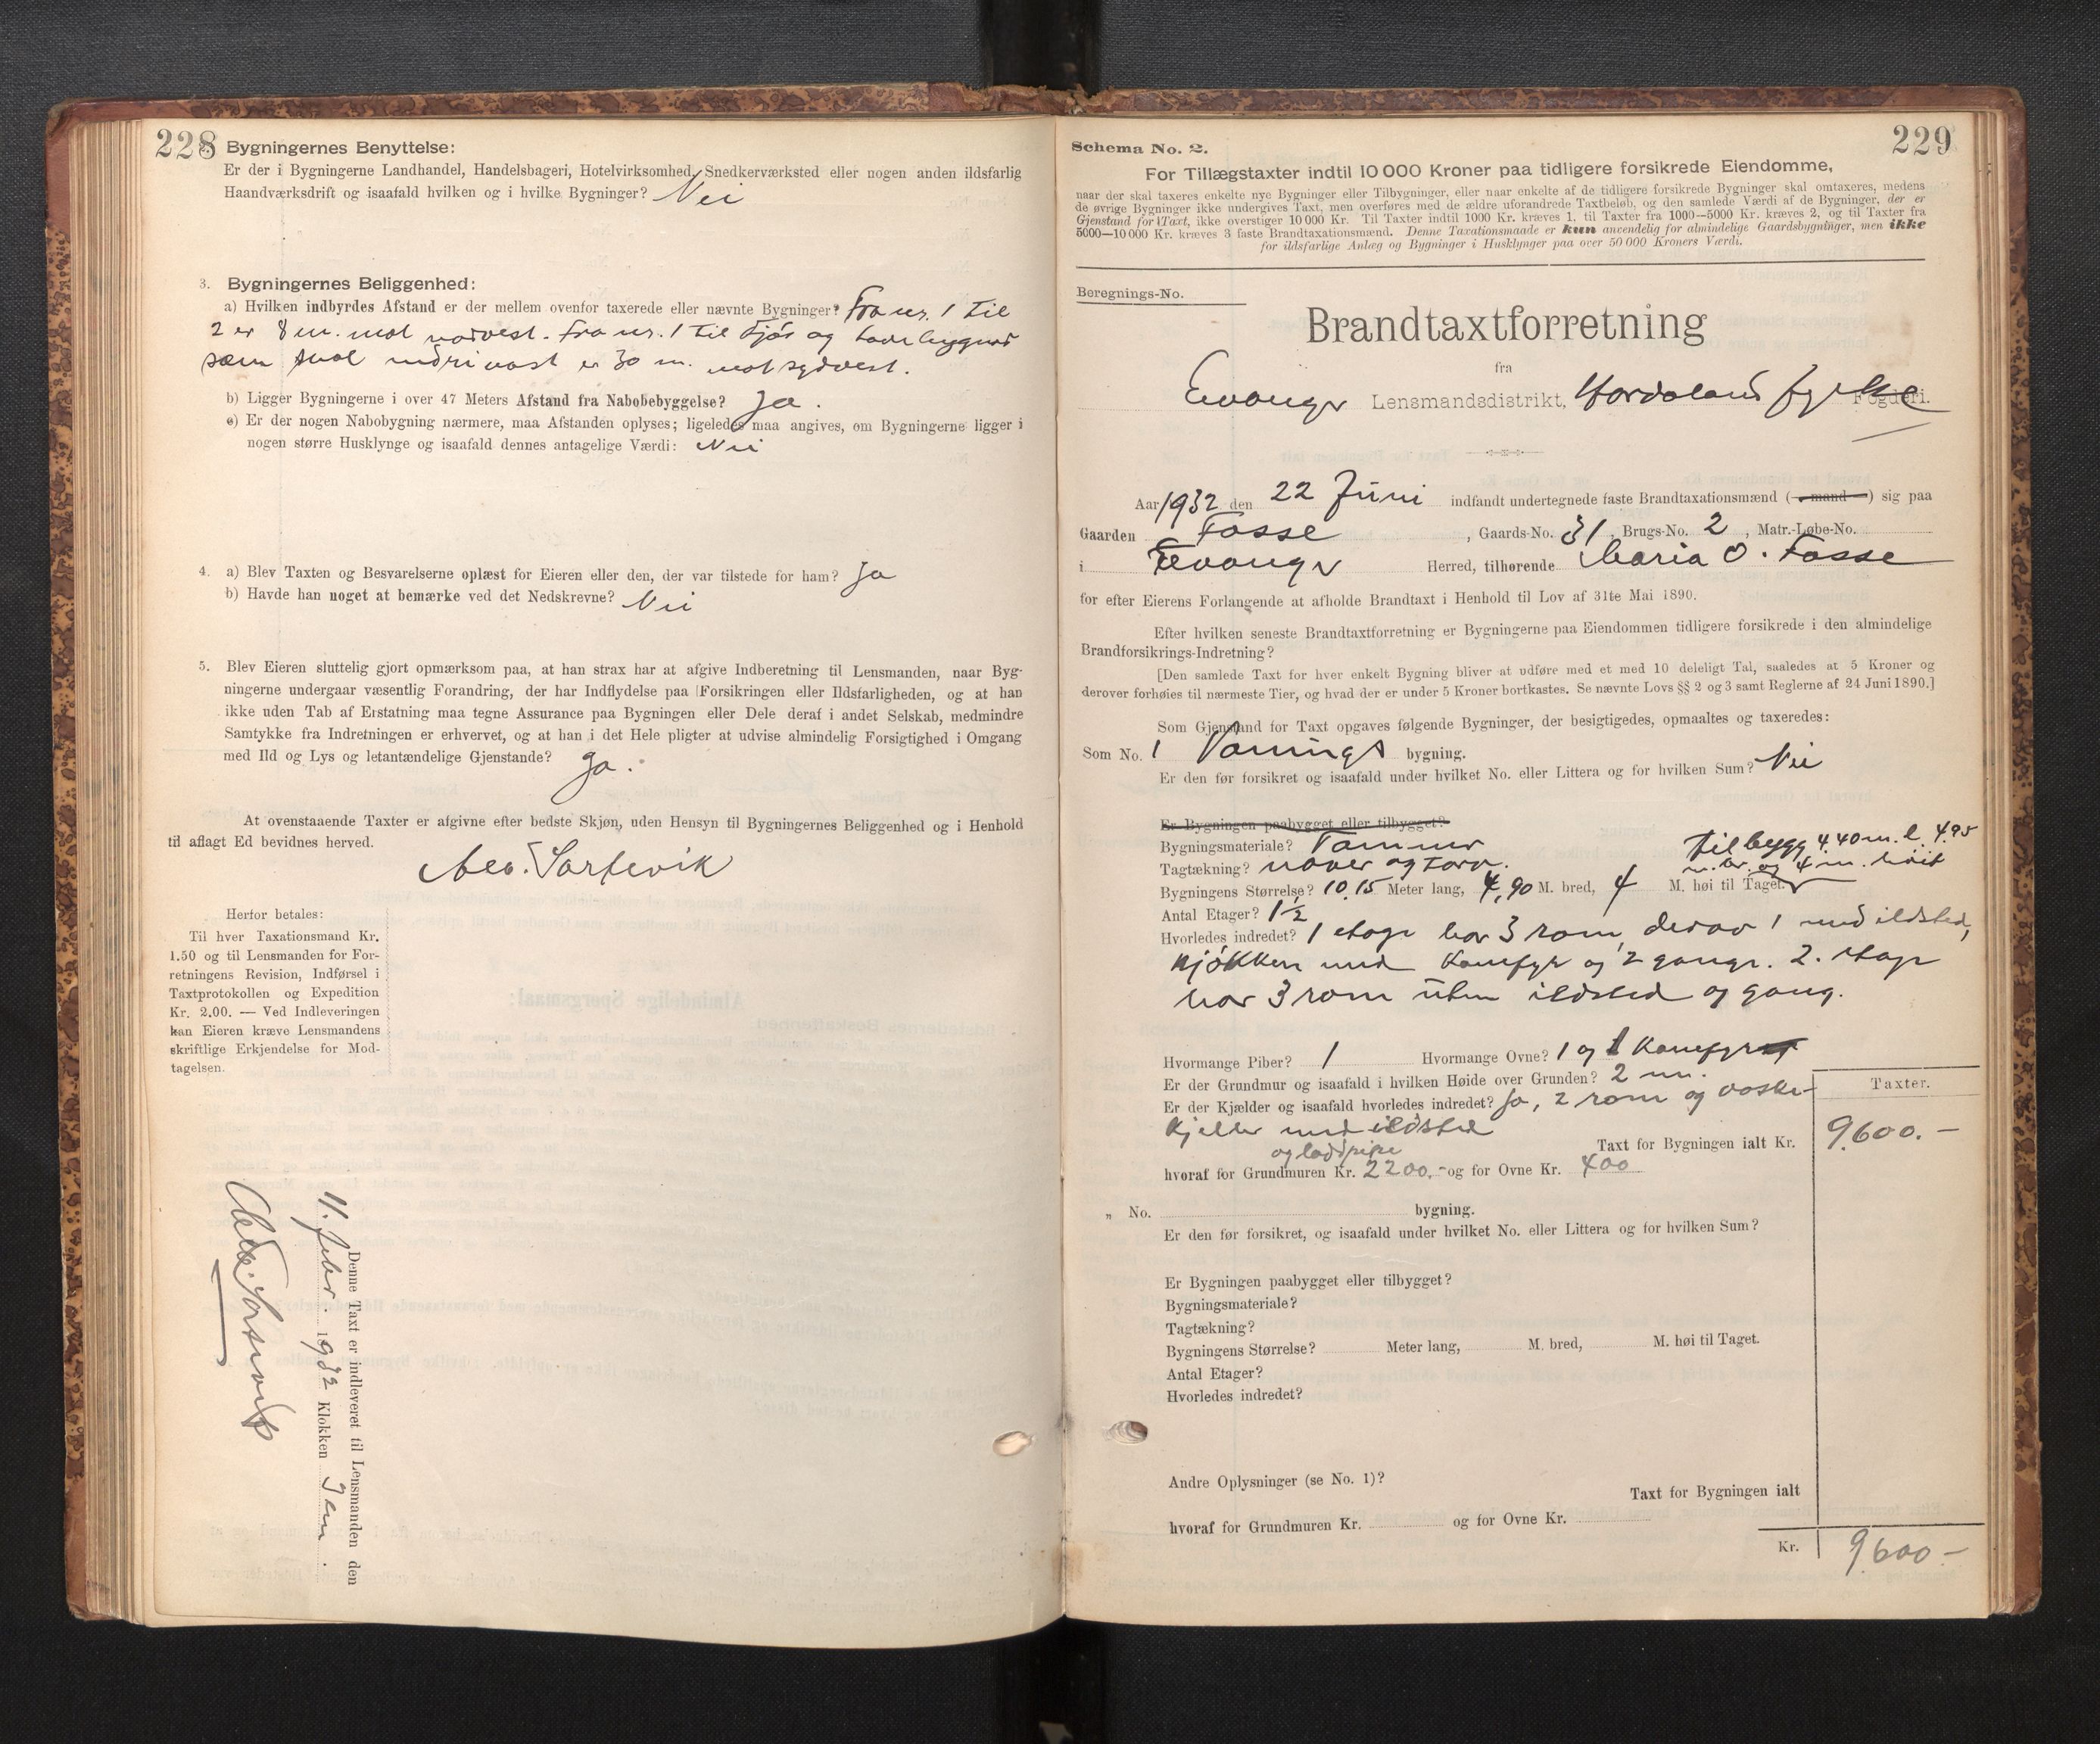 228
Bygningernes Benyttelse:
Er der i Bygningerne Landhandel, Handelsbageri, Hotelvirksomhed, Snedkerværksted eller nogen anden ildsfarlig
Haandværksdrift og isaafald hvilken og i hvilke Bygninger? Nei
3. Bygningernes Beliggenhed:
a) Hvilken indbyrdes Afstand er der mellem ovenfor taxerede eller nævnte Bygninger? Fra nr. 1 til
2 er 8 m. mot nordvest. Fra nr. 1 til Fjös og
som skal er 30 m. mot sydvest.
b) Ligger Bygningerne i over 47 Meters Afstand fra Nabobebyggelse? Ja.
c) Er der nogen Nabobygning nærmere, maa Afstanden oplyses; ligeledes maa angives, om Bygningerne ligger i
nogen større Husklynge og isaafald dennes antagelige Værdi: Nei
4. a) Blev Taxten og Besvarelserne oplæst for Eieren eller den, der var tilstede for ham? Ja
b) Havde han noget at bemærke ved det Nedskrevne? Nei
5. Blev Eieren sluttelig gjort opmærksom paa, at han strax har at afgive Indberetning til Lensmanden, naar Byg-
ningerne undergaar væsentlig Forandring, der har Indflydelse paa Forsikringen eller Ildsfarligheden, og at han
ikke uden Tab af Erstatning maa tegne Assurance paa Bygningen eller Dele deraf i andet Selskab, medmindre
Samtykke fra Indretningen er erhvervet, og at han i det Hele pligter at udvise almindelig Forsigtighed i Omgang
med Ild og Lys og letantændelige Gjenstande? Ja.
At ovenstaaende Taxter er afgivne efter bedste Skjøn, uden Hensyn til Bygningernes Beliggenhed og i Henhold
til aflagt Ed bevidnes herved.
Sortevik
Herfor betales:
Til hver Taxationsmand Kr.
1.50 og til Lensmanden for For-
retningens Revision, Indførsel i
Taxtprotokollen og Expedition
Kr. 2.00. — Ved Indleveringen
kan Eieren kræve Lensmandens
skriftlige Erkjendelse for Mod-
tagelsen.
Denne Taxt er indleveret til Lensmanden den
11. febr. 1932 Klokken
Sortevik
229
Schema No. 2.
For Tillægstaxter indtil 10 000 Kroner paa tidligere forsikrede Eiendomme,
naar der skal taxeres enkelte nye Bygninger eller Tilbygninger, eller naar enkelte af de tidligere forsikrede Bygninger skal omtaxeres, medens
de øvrige Bygninger ikke undergives Taxt, men overføres med de ældre uforandrede Taxtbeløb, og den samlede Værdi af de Bygninger, der er
Gjenstand for Taxt, ikke overstiger 10 000 Kr. Til Taxter indtil 1000 Kr. kræves 1, til Taxter fra 1000—5000 Kr. kræves 2, og til Taxter fra
5000—10 000 Kr. kræves 3 faste Brandtaxationsmænd. Denne Taxationsmaade er kun anvendelig for almindelige Gaardsbygninger, men ikke
for ildsfarlige Anlæg og Bygninger i Husklynger paa over 50 000 Kroners Værdi.
Beregnings-No.
Brandtaxtforretning
fra
Evanger Lensmandsdistrikt, Hordaland fylke Fogderi.
Aar 1932 den 22 Juni indfandt undertegnede faste Brandtaxationsmænd (-mand-) sig paa
Gaarden Fosse, Gaards-No. 31, Brugs-No. 2, Matr.-Løbe-No.
i Evanger Herred, tilhørende Maria O. Fosse
for efter Eierens Forlangende at afholde Brandtaxt i Henhold til Lov af 31te Mai 1890.
Efter hvilken seneste Brandtaxtforretning er Bygningerne paa Eiendommen tidligere forsikrede i den almindelige
Brandforsikrings-Indretning?
[Den samlede Taxt for hver enkelt Bygning bliver at udføre med et med 10 deleligt Tal, saaledes at 5 Kroner og
derover forhøies til nærmeste Tier, og hvad der er under 5 Kroner bortkastes. Se nævnte Lovs §§ 2 og 3 samt Reglerne af 24 Juni 1890.]
Som Gjenstand for Taxt opgaves følgende Bygninger, der besigtigedes, opmaaltes og taxeredes:
Som No. 1 Vaanings bygning.
Er den før forsikret og isaafald under hvilket No. eller Littera og for hvilken Sum? Nei
Er Bygningen paabygget eller tilbygget?
Bygningsmateriale? Tømmer
tilbygg 4.40 m. l. 4.95
Tagtækning? næver og torv.
m. br. og 4 m. höit
Bygningens Størrelse? 10.15 Meter lang, 4,90 M. bred, 4 M. høi til Taget.
Antal Etager? 1½
Hvorledes indredet? 1 etage har 3 rom, derav 1 med ildsted,
kjökken med komfyr og 2 gange. 2. etage
har 3 rom uten ildsted og gang.
Hvormange Piber? 1 Hvormange Ovne? 1 og 1 komfyr
Er der Grundmur og isaafald i hvilken Høide over Grunden? 2 m.
Er der Kjælder og isaafald hvorledes indredet? Ja, 2 rom og vaske-
kjeller med ildsted
og
Taxter.
Taxt for Bygningen ialt Kr. 9600.—
hvoraf for Grundmuren Kr. 2200.- og for Ovne Kr. 400
" No. bygning.
Er den før forsikret, og isaafald under hvilket No. eller Littera og for hvilken Sum?
Er Bygningen paabygget eller tilbygget?
Bygningsmateriale?
Tagtækning?
Bygningens Størrelse? Meter lang, M. bred, M. høi til Taget.
Antal Etager?
Hvorledes indredet?
Andre Oplysninger (se No. 1)?
Taxt for Bygningen ialt
hvoraf for Grundmuren Kr. og for Ovne Kr.
Kr. 9600—